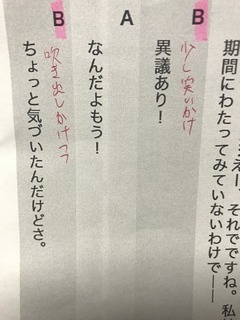 期間にわたってみていないわけで――
えー、それでですね。私
B
少し笑いかけ
異議あり！
A
なんだよもう！
B
吹き出しかけつつ
ちょっと気づいたんだけどさ。